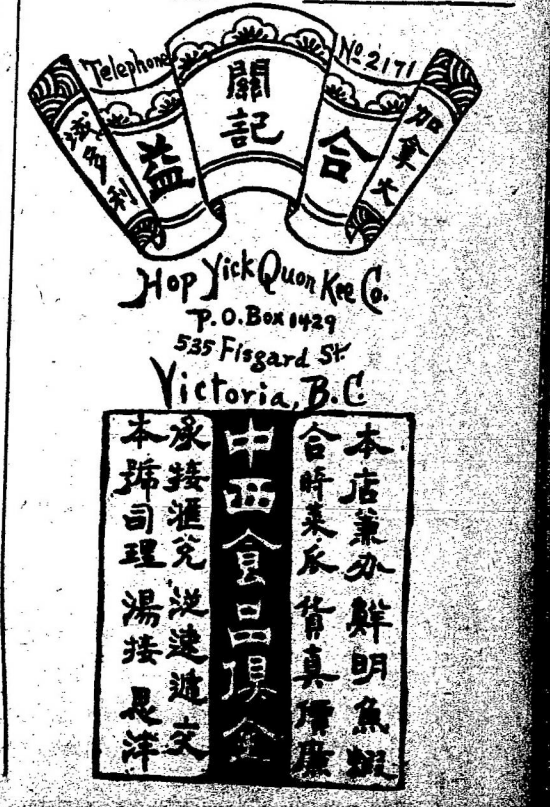 Telephone No. 2171
加拿大
合
關記
益
域多利
Hop Yick Quon Kee Co.
P.O. Box 1429
535 Fisgard St.
Victoria, B.C.
本店兼办鮮明魚蝦
合時菜瓜貨真價廉
中西食品俱全
承接滙兌從速遞交
本號司理湯接